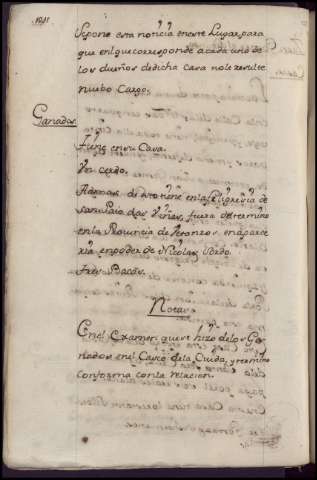 Se pone esta noticia en este Lugar, para
que en lo que corresponde a cada uno de
los dueños de dicha Casa no le resulte
nuebo Cargo.
Ganados.
Tiene en su Casa.
Un cerdo.
Ademas de esto tiene en la feligresia de
San Paio das Viñas, fuera del termino
en la Provincia de Vetanzos, en aparce
ria en poder de Nicolas Pardo
tres Bacas.
Nota
En el Examen que se hizo de los Ga
nados en el Casco de la Ciudad, y termino
conforma con la relacion.